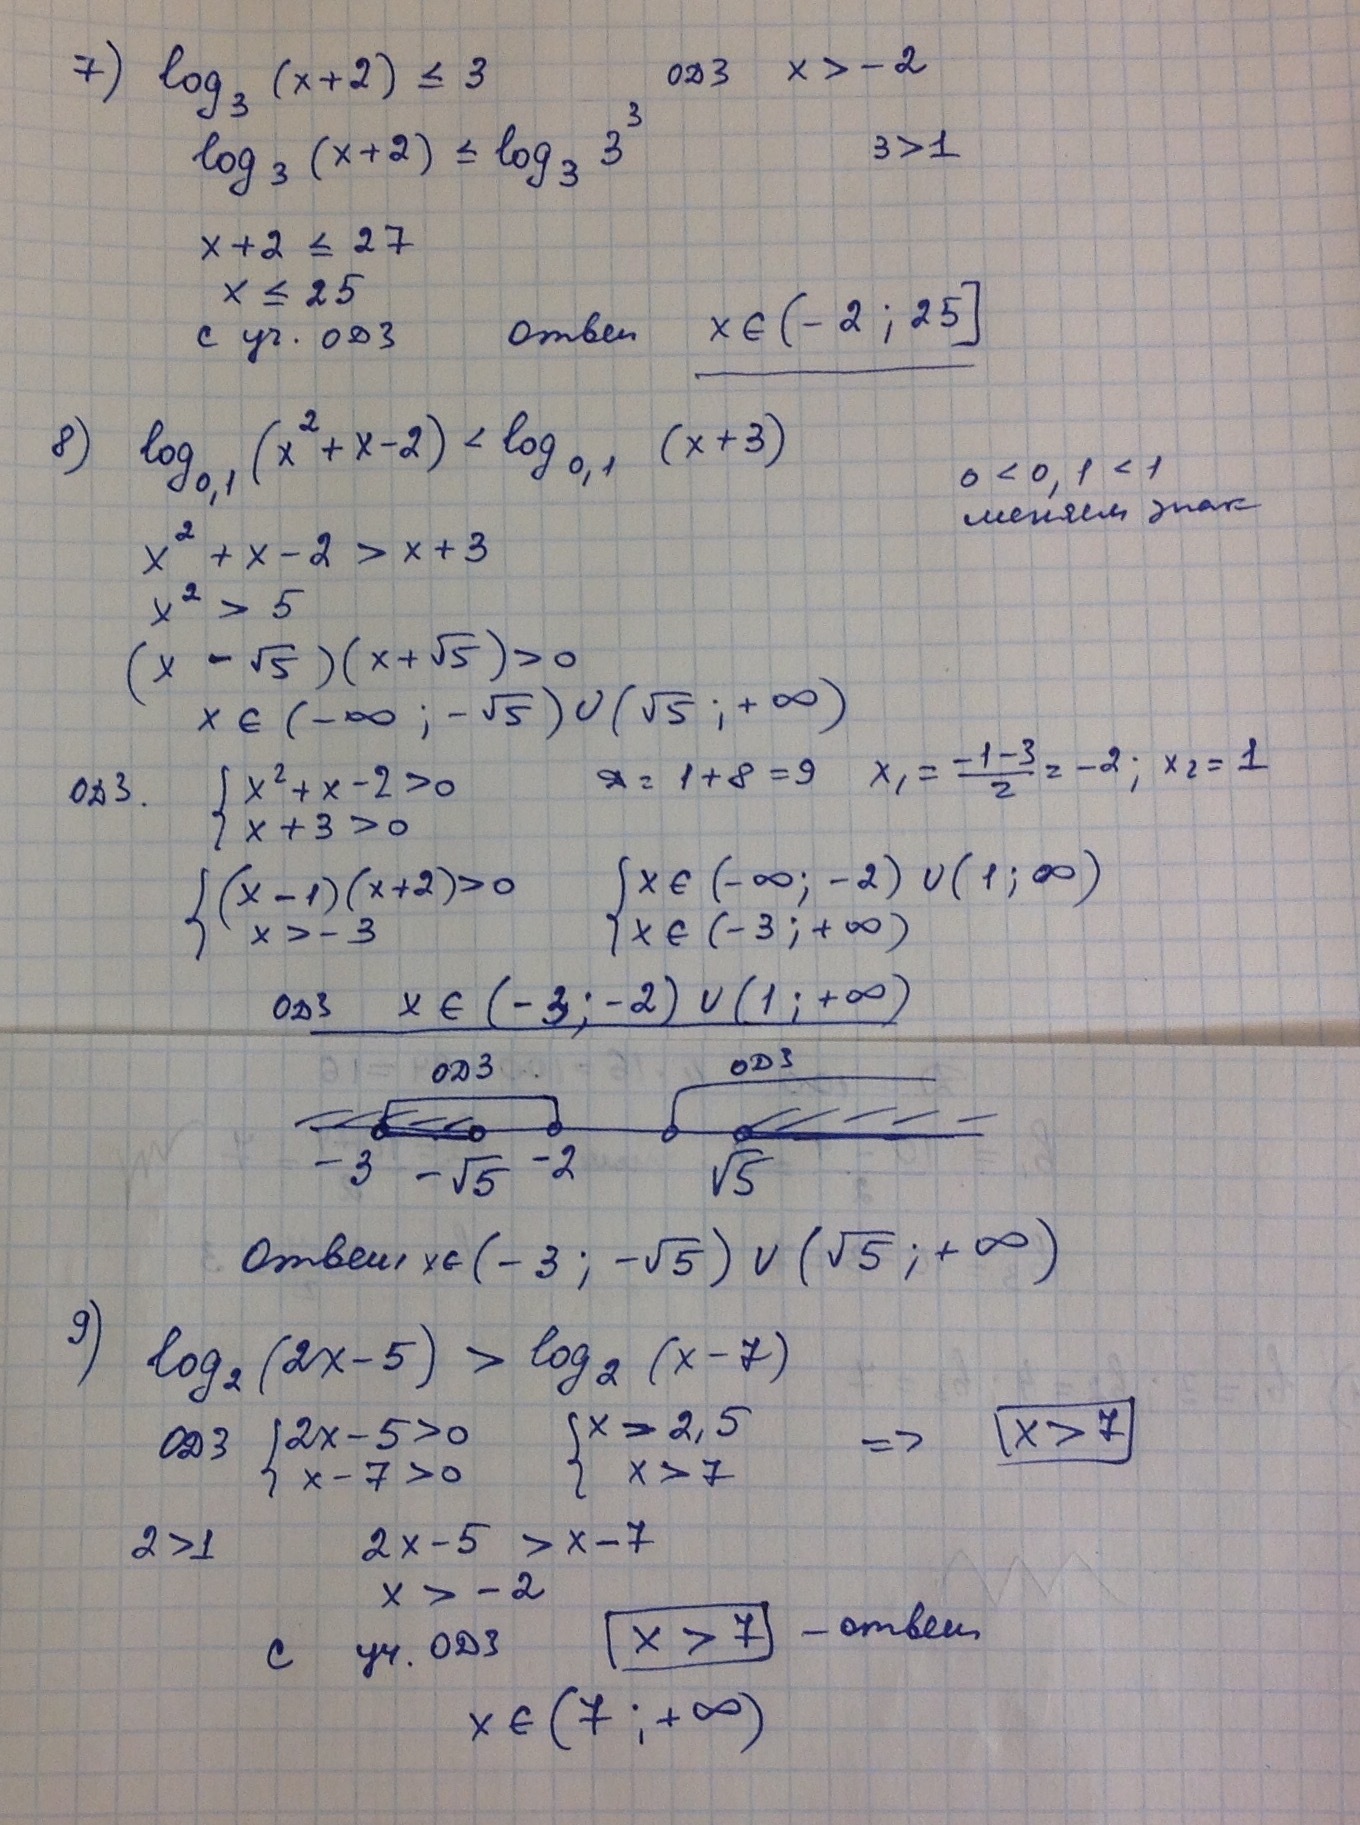 7) log₃ (x+2) ≤ 3 ОДЗ x > -2
log₃ (x+2) ≤ log₃ 3³ 3>1
x+2 ≤ 27
x ≤ 25
с уч. ОДЗ ответ x ∈ (-2 ; 25]
8) log₀,₁ (x²+x-2) < log₀,₁ (x+3)
0 < 0,1 < 1
меняем знак
x² + x - 2 > x + 3
x² > 5
(x - √5)(x+√5) > 0
x ∈ (-∞ ; -√5) ∪ (√5 ; +∞)
ОДЗ. { x²+x-2 > 0 D = 1+8 = 9 x₁ = (-1-3)/2 = -2; x₂ = 1
x + 3 > 0
{ (x-1)(x+2) > 0 { x ∈ (-∞; -2) ∪ (1; ∞)
x > -3 x ∈ (-3 ; +∞)
ОДЗ x ∈ (-3; -2) ∪ (1; +∞)
ОДЗ ОДЗ
-3 -√5 -2 √5
Ответ: x∈ (-3 ; -√5) ∪ (√5 ; +∞)
9) log₂ (2x-5) > log₂ (x-7)
ОДЗ { 2x-5 > 0 { x > 2,5 => x > 7
x-7 > 0 x > 7
2>1 2x-5 > x-7
x > -2
с уч. ОДЗ x > 7 – ответ
x ∈ (7 ; +∞)